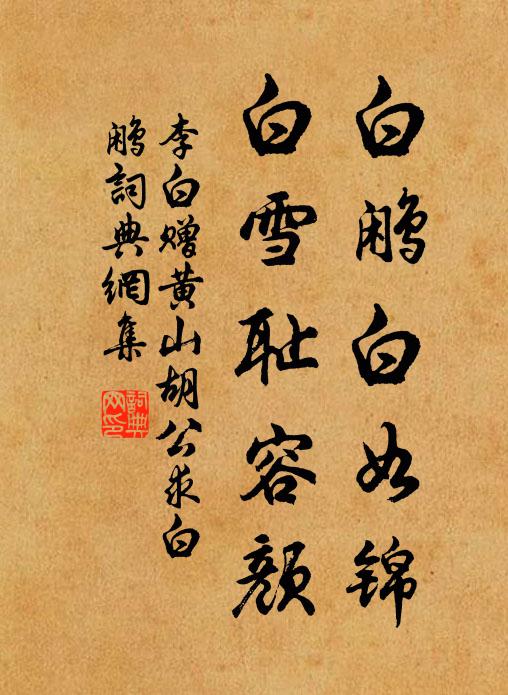 白鹇白如锦
白雪耻容颜
李白赠黄山胡公求白
鹇詞典網集
詞典
网印